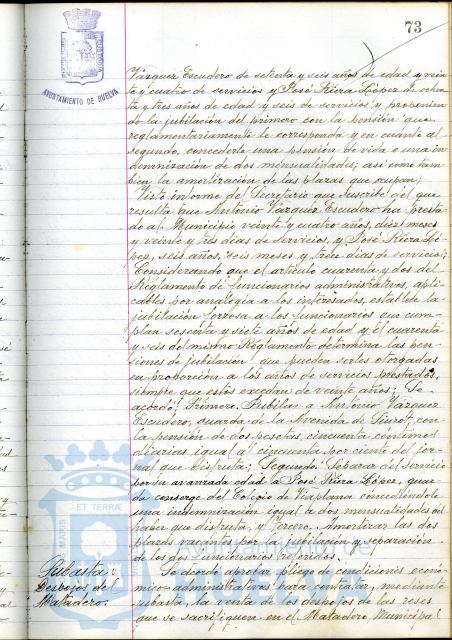 73
AYUNTAMIENTO DE HUELVA
Vázquez Escudero de setenta y seis años de edad y vein
te y cuatro de servicios y José Riera López de ochen
ta y tres años de edad y seis de servicios y proponien
do la jubilación del primero con la pensión que
reglamentariamente le corresponda y en cuanto al
segundo, concederle una pensión de vida o una in
demnización de dos mensualidades; así como tam
bien la amortización de las plazas que ocupan;
Visto informe del Secretario que suscribe del que
resulta que Antonio Vázquez Escudero ha presta
do al Municipio veinte y cuatro años, diez meses
y veinte y tres días de servicios, y José Riera Ló
pez, seis años, seis meses y trece días de servicio;
Considerando que el artículo cuarenta y dos del
Reglamento de funcionarios administrativos, apli
cables por analogía a los interesados, establece la
jubilación forzosa a los funcionarios que cum-
plan sesenta y siete años de edad y el cuarenta
y seis del mismo Reglamento determina las pen
siones de jubilación que pueden serles otorgadas
en proporción a los años de servicios prestados,
siempre que estos excedan de veinte años; Se
acordó: Primero. Jubilar a Antonio Vázquez
Escudero, guarda de la Avenida de
la pensión de dos pesetas, cincuenta céntimos
diarias igual a cincuenta por ciento del jor-
nal que disfruta; Segundo. Separar del servicio
por su avanzada edad a José Riera López, guar
da conserge del Colegio de Viaplana concediéndole
una indemnización igual a dos mensualidades del
haber que disfruta, y Tercero. Amortizar las dos
plazas vacantes por la jubilación y separación
de los dos funcionarios referidos.
Subasta:
Despojos del
Matadero.
Se acordó aprobar pliego de condiciones econó
mico-administrativas para contratar, mediante
subasta, la venta de los despojos de las reses
que se sacrifiquen en el Matadero Municipal